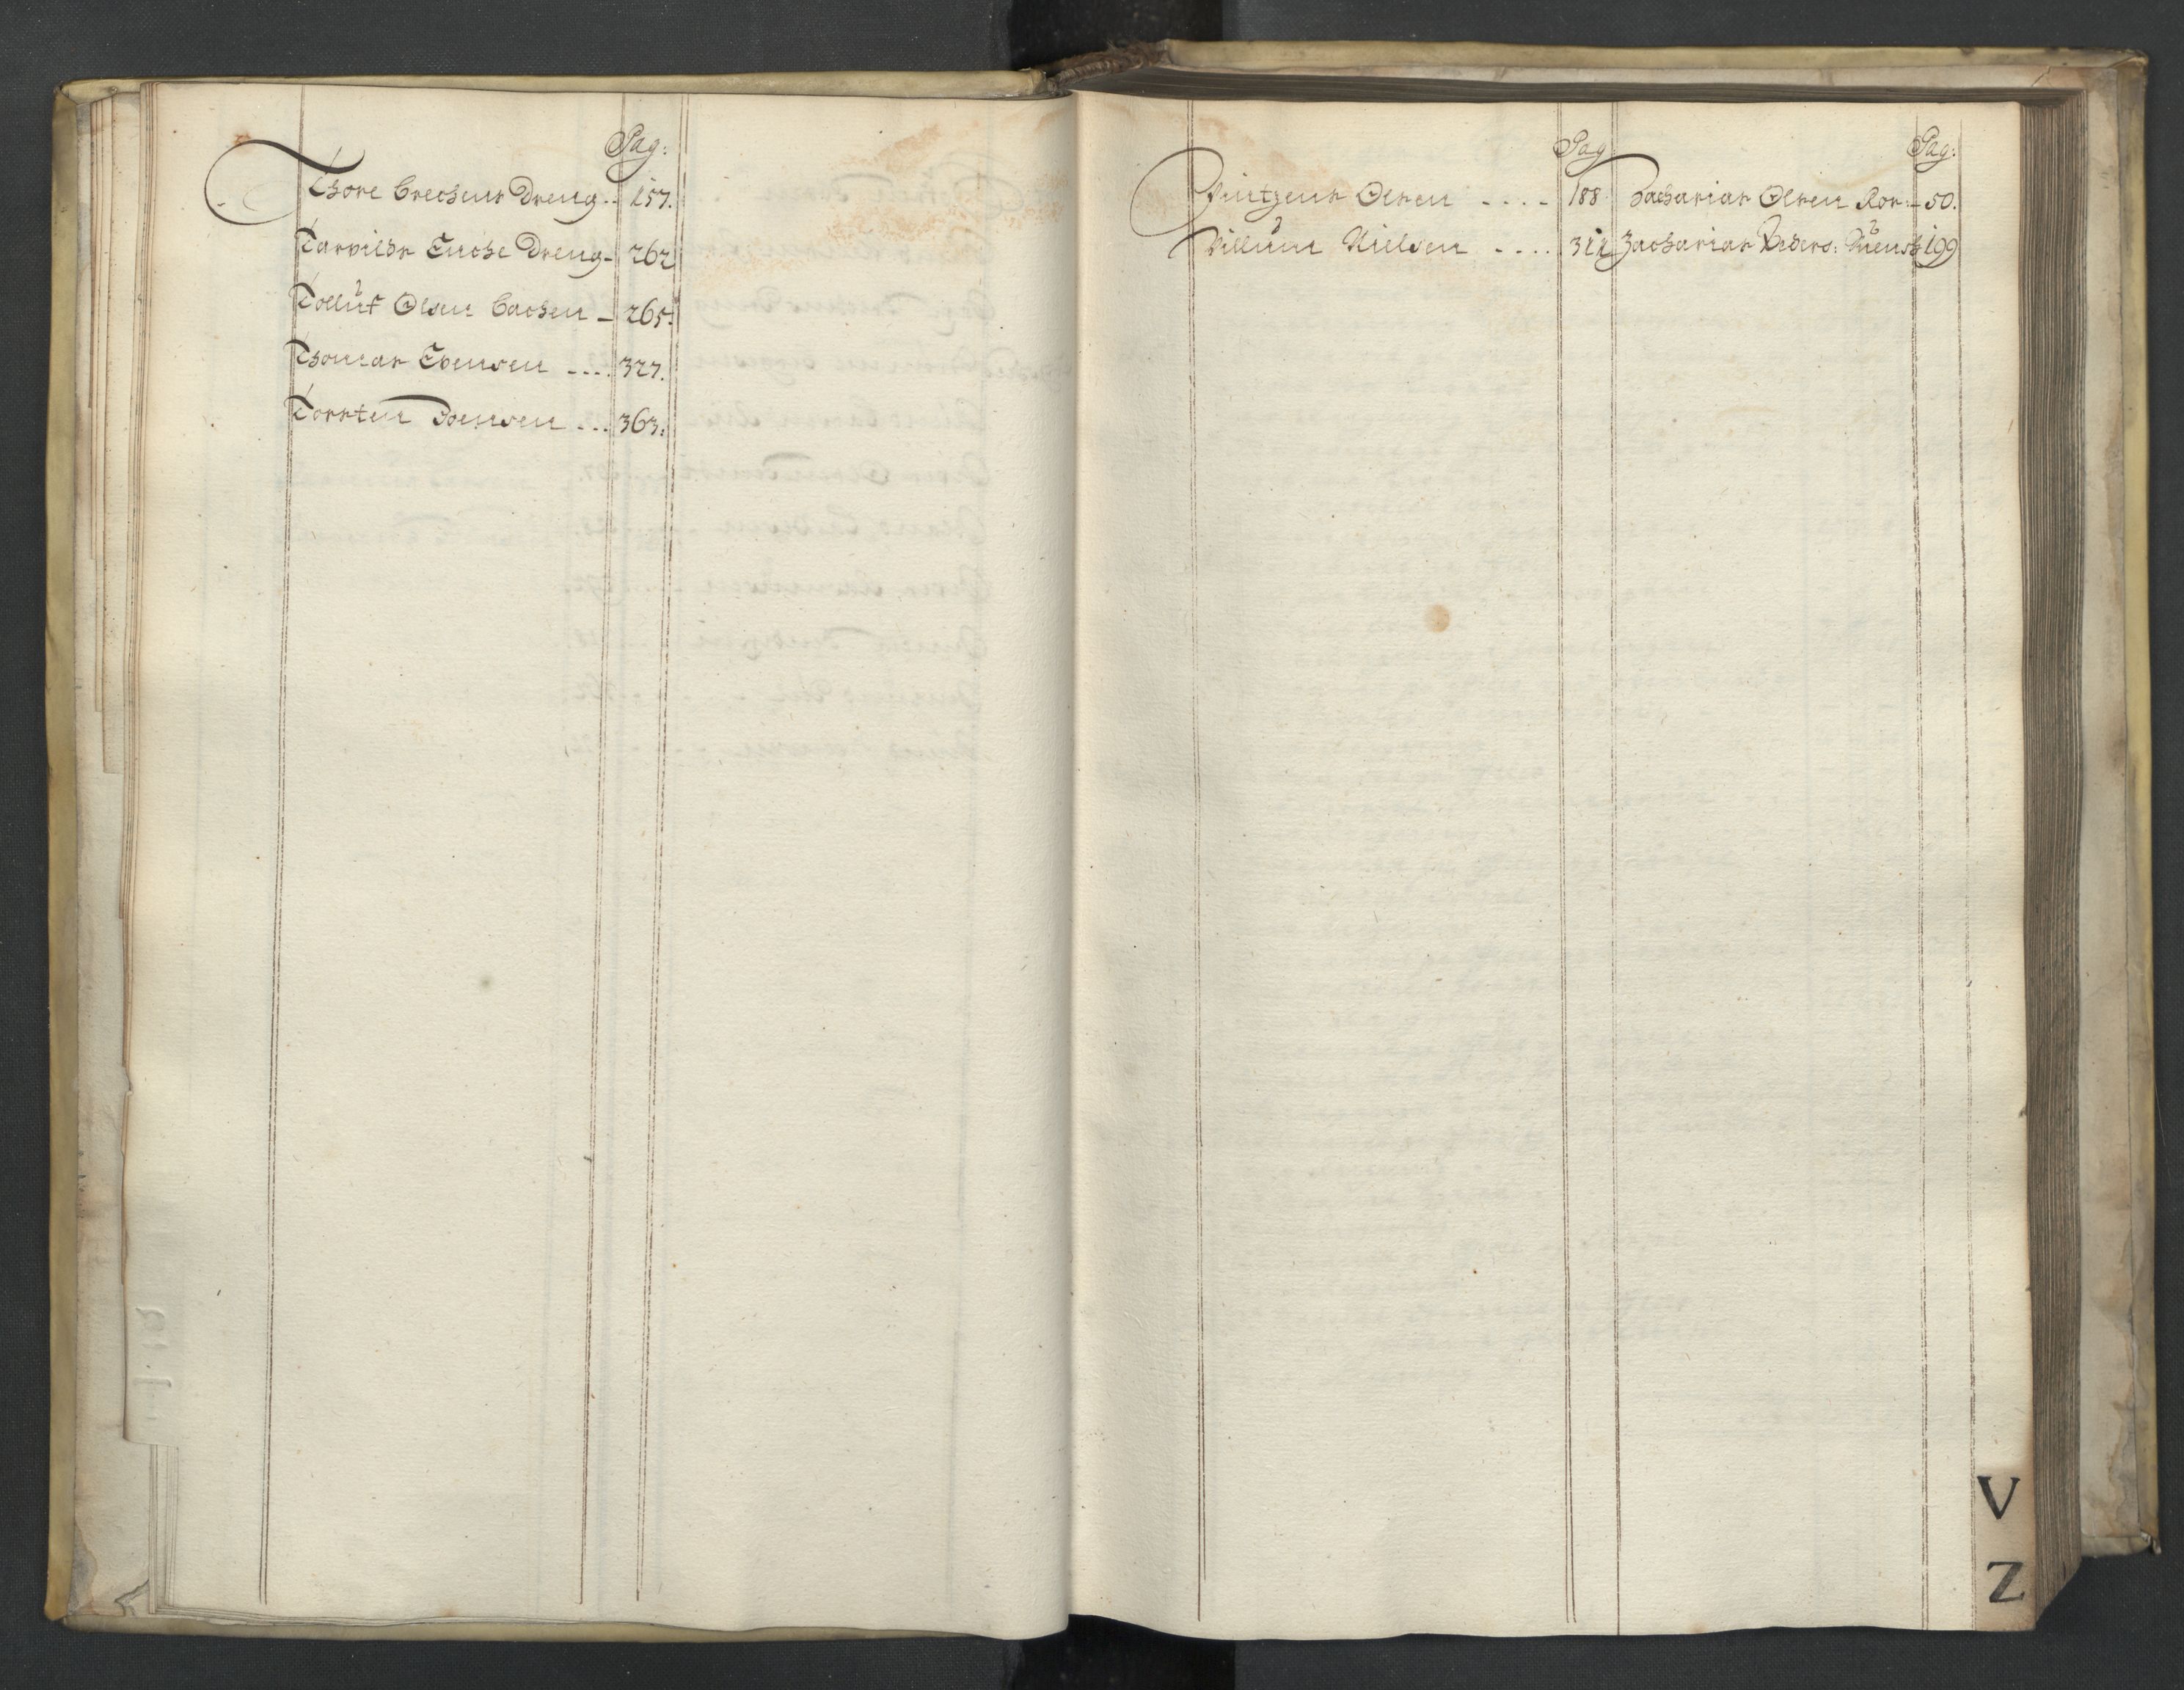 Pag:
Thore Brechens Dreng .. 157.
Tarvilds Enche Dreng - 262
Tolluf Olsen Bachen - 265.
Thomas Evensen .... 327.
Torsten Joensen ... 363.
Pag
Vintzens Olsen .... 188
Villum Nielsen .... 311
Pag:
Zacharias Olsen Ror: - 50.
Zacharias Peders: 199
V
Z